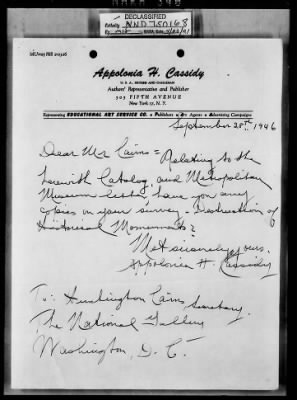 DECLASSIFIED
Authority NND 750168
Appolonia H. Cassidy
Authors' Representative and Publisher
505 FIFTH AVENUE
New York 17, N. Y.
Representing EDUCATIONAL ART SERVICE CO. • Publishers • Art Agents • Advertising Campaigns
September 20th 1946
Dear Mr Cairns = Relating to the
herewith Catalog and Metropolitan
Museum letter, have you any
copies in your survey - Destruction of
Historical Monuments?
Most sincerely yours.
Appolonia H. Cassidy
To: Huntington Cairns, Secretary.
The National Gallery
Washington, D. C.